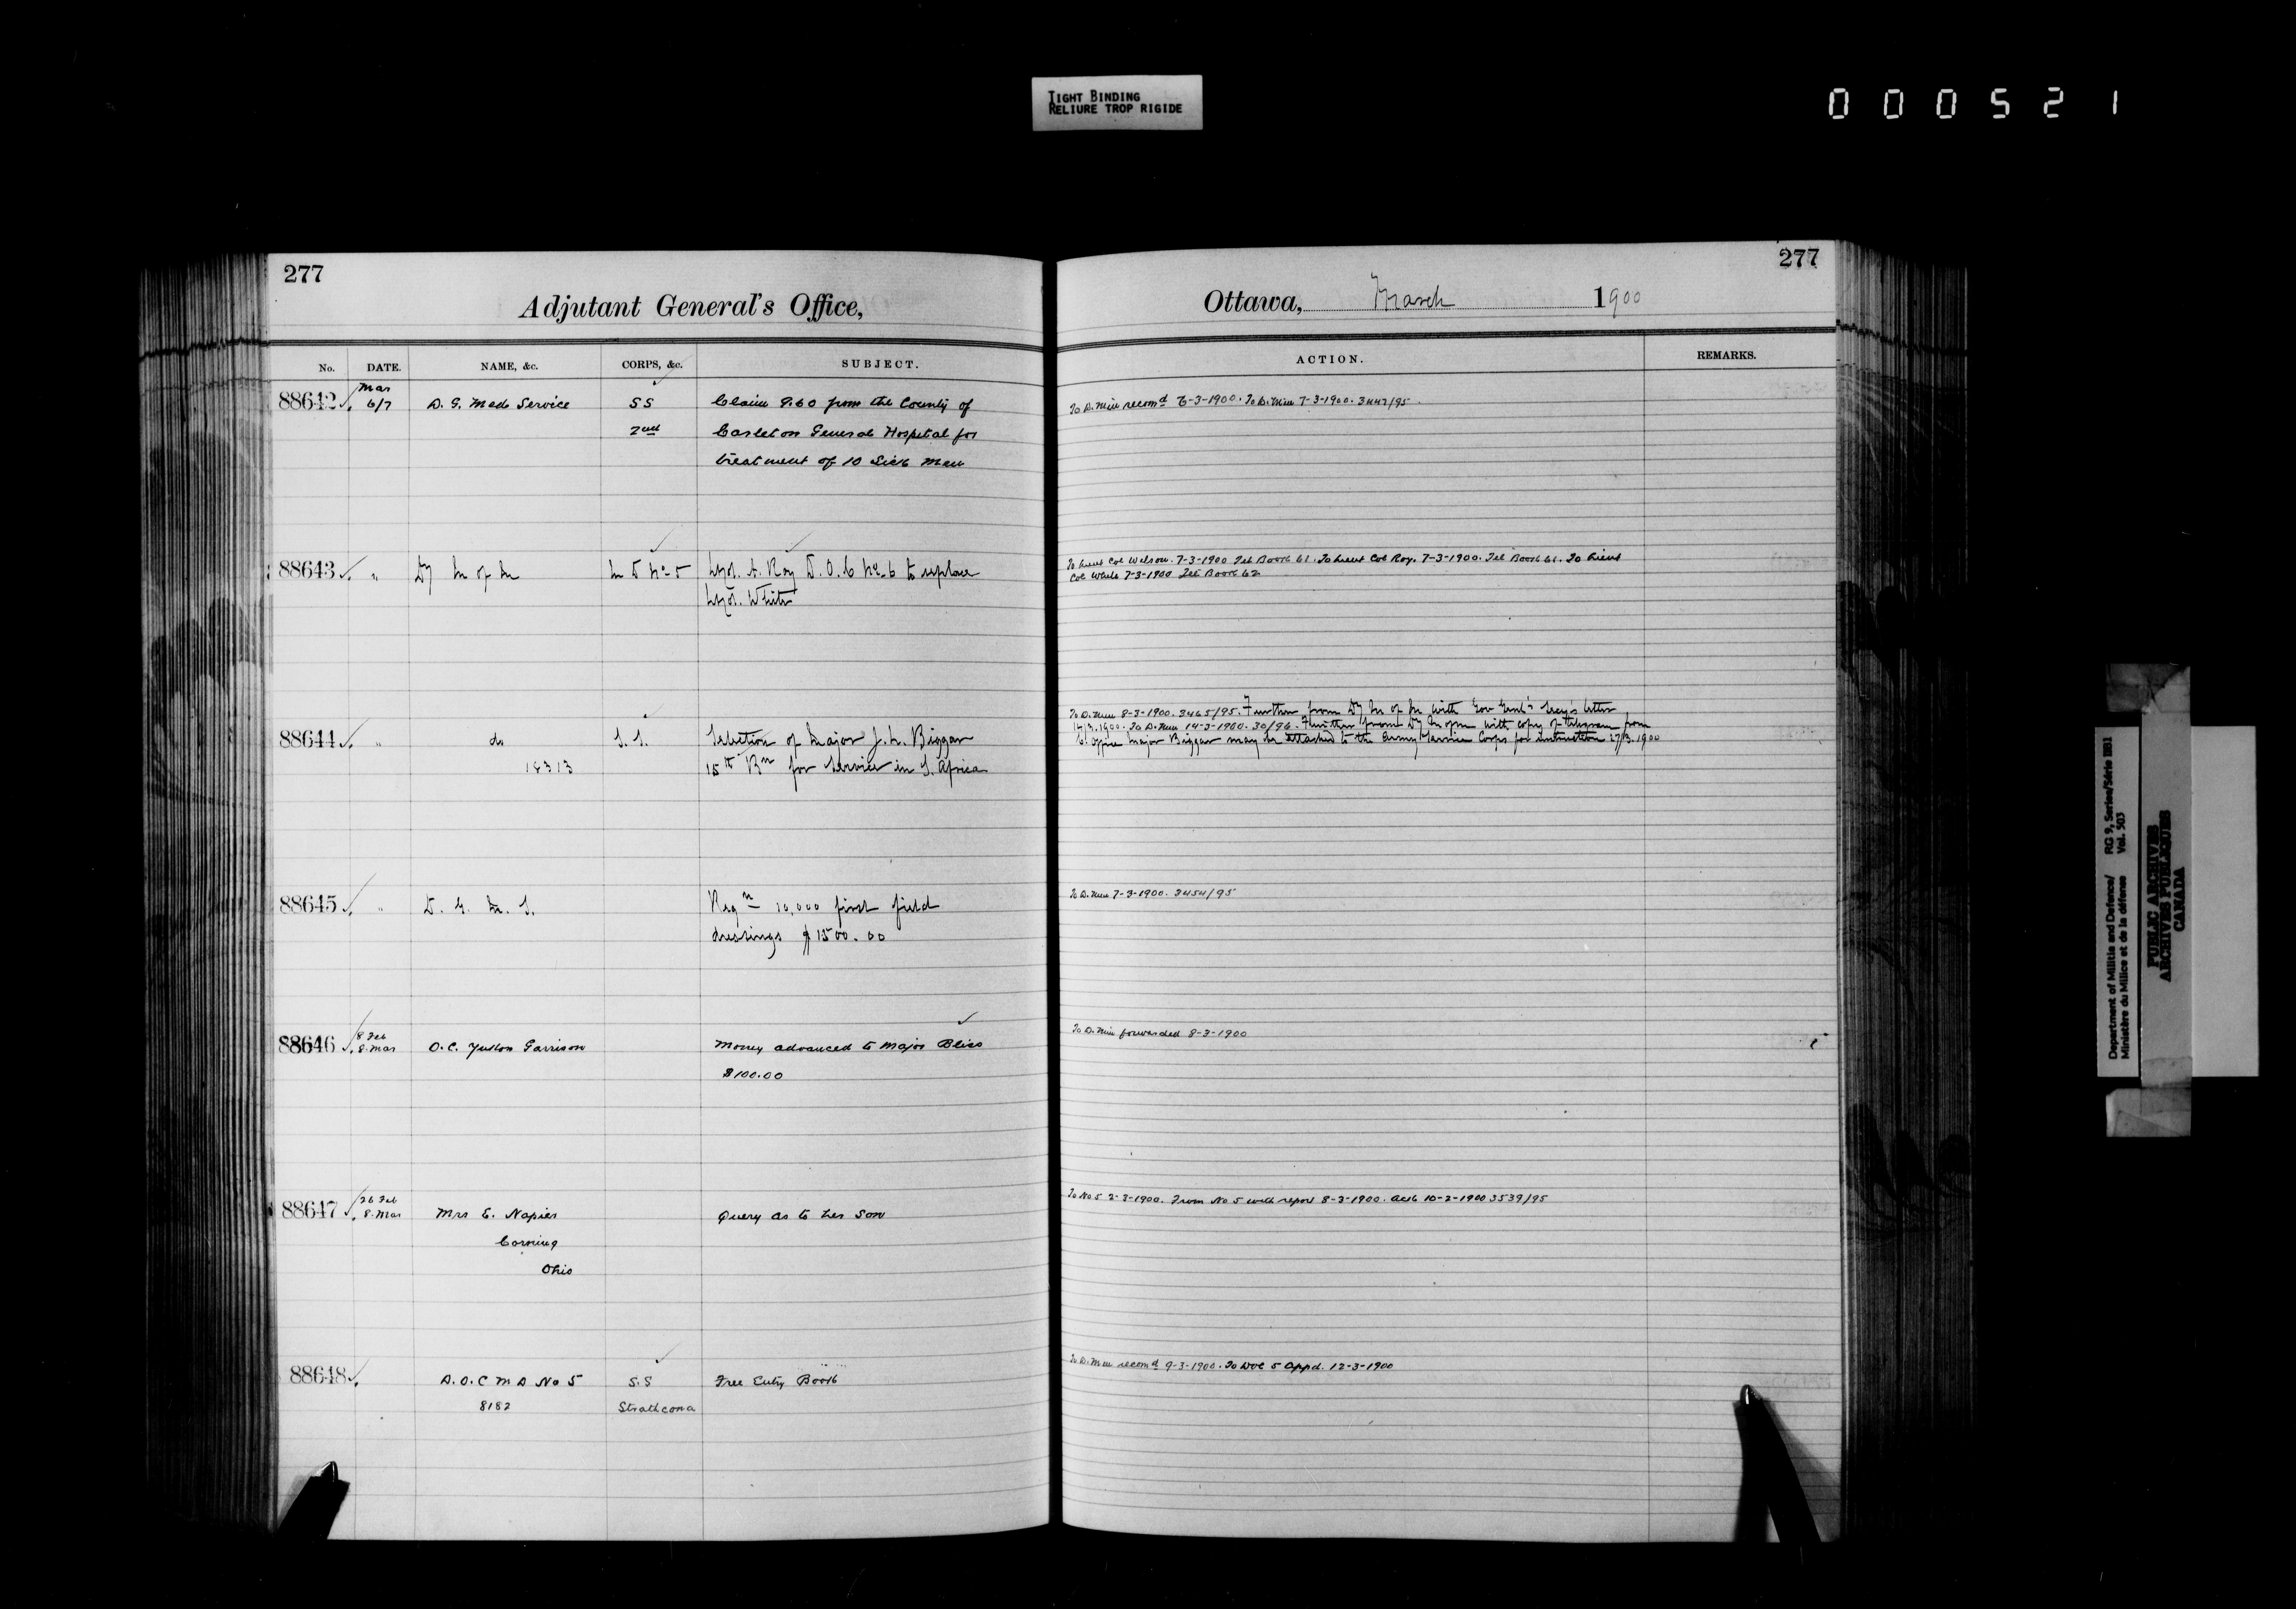 TIGHT BINDING
RELIURE TROP RIGIDE
000521
277
Adjutant General's Office,
No. DATE. NAME, &c. CORPS, &c. SUBJECT.
88642 Mar 6/7 D. G. Medl Service SS Claim 9.60 from the County of
2nd Carleton General Hospital for
treatment of 10 Sick Men
88643 " Dy M of M M D No 5 Lt Col. A. Roy D.O.C No 6 to replace
Lt Col. White
88644 " do S. S. Selection of Major J. L. Biggar
18313 15th Bn for Service in S. Africa
88645 " D. G. M. S. Reqn 10,000 first field
dressings $1500.00
88646 8 Feb
8 Mar O.C. Yukon Garrison Money advanced to Major Bliss
$100.00
88647 26 Feb
8 Mar Mrs E. Napier Query as to her Son
Corning
Ohio
88648 D.O.C M D No 5 S.S Free Entry Books
8182 Strathcona
277
Ottawa, March 1900
ACTION. REMARKS.
To D. Min recomd 6-3-1900. To D. Min 7-3-1900. 3447/95.
To Lieut Col Wilson. 7-3-1900 Tel Book 61. To Lieut Col Roy. 7-3-1900. Tel Book 61. To Lieut
Col White 7-3-1900 Tel Book 62
To D. Min 8-3-1900. 3465/95. Further from Dy M of M with Gov Genl's Secy's letter
To D. Min 14-3-1900. 30/96. Further from Dy M of M with copy of telegram from
Office Major Biggar may be attached to the Army Service Corps for instruction 27/3.1900
To D. Min 7-3-1900. 3454/95
To D. Min forwarded 8-3-1900
To No 5 2-3-1900. From No 5 with report 8-3-1900. Ack 10-3-1900 3539/95
To D. Min recomd 9-3-1900. To DOC 5 appd. 12-3-1900
Department of Militia and Defence/ RG 9, Series/Série IIB1
Ministère du Milice et de la défense Vol. 503
PUBLIC ARCHIVES
ARCHIVES PUBLIQUES
CANADA